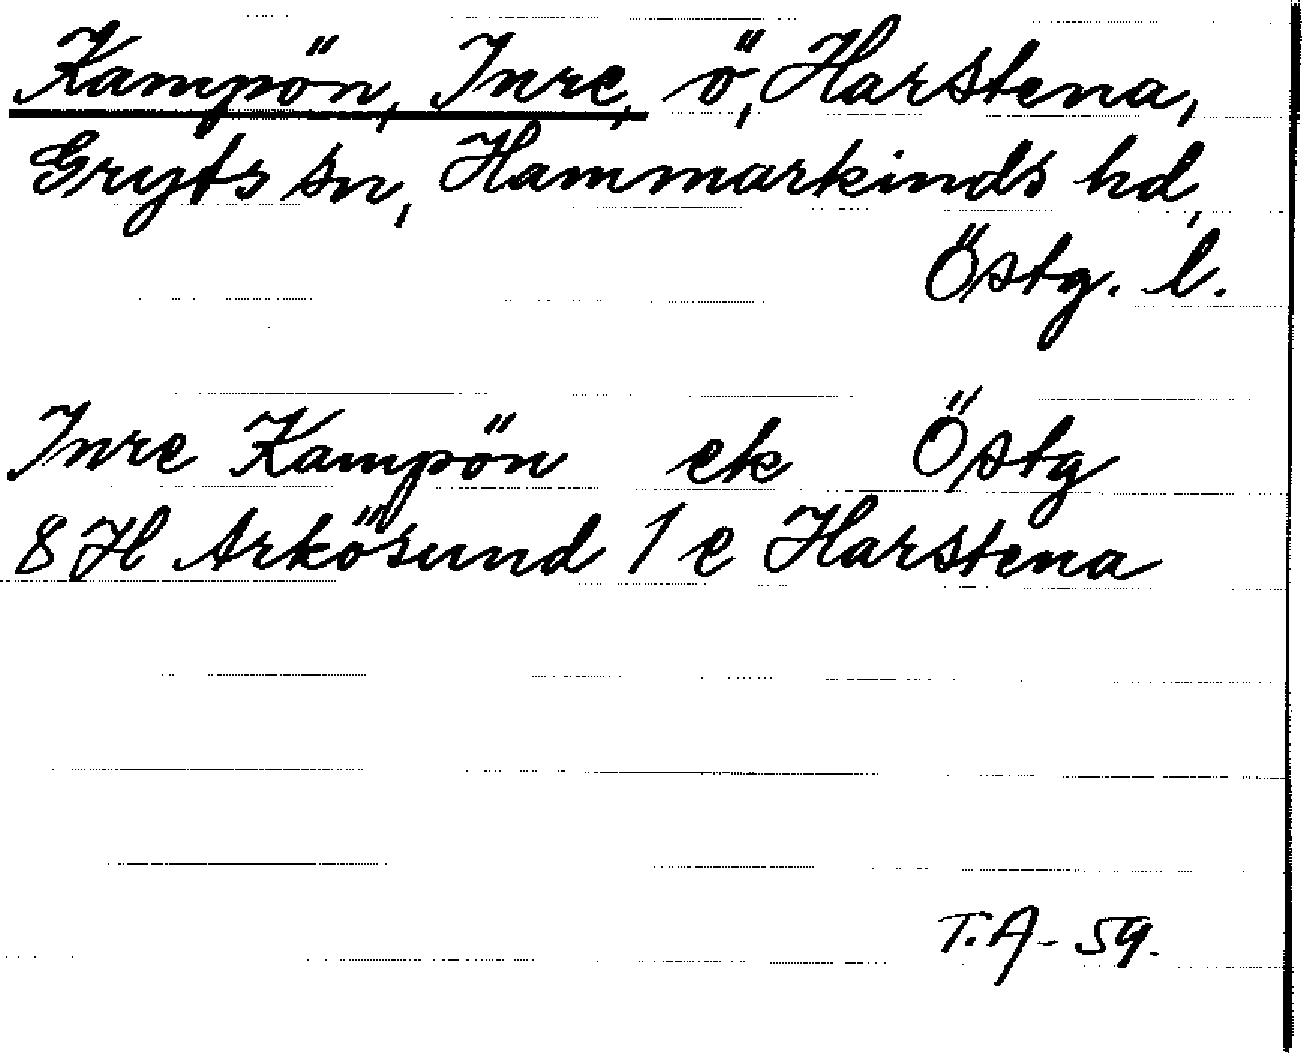 Kampön, Inre, ö, Harstena,
Gryts sn, Hammarkinds hd,
Östg. l.
Inre Kampön ek Östg
8 H Arkösund 1 c Harstena
T.A- 59.